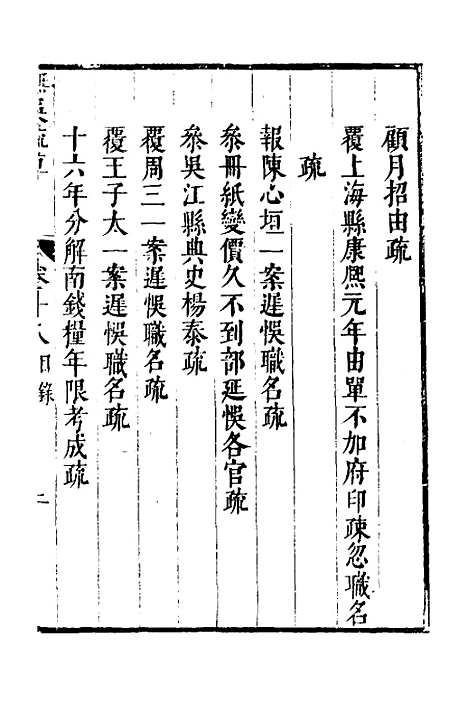 顧月招由疏
覆上海縣康熙元年由單不加府印疎忽職名
疏
報陳心垣一案遲悞職名疏
叅冊紙變價久不到部延悞各官疏
叅吳江縣典史楊泰疏
覆周三一案遲悞職名疏
覆王子太一案遲悞職名疏
十六年分解南錢糧年限考成疏
卷十八目錄
二